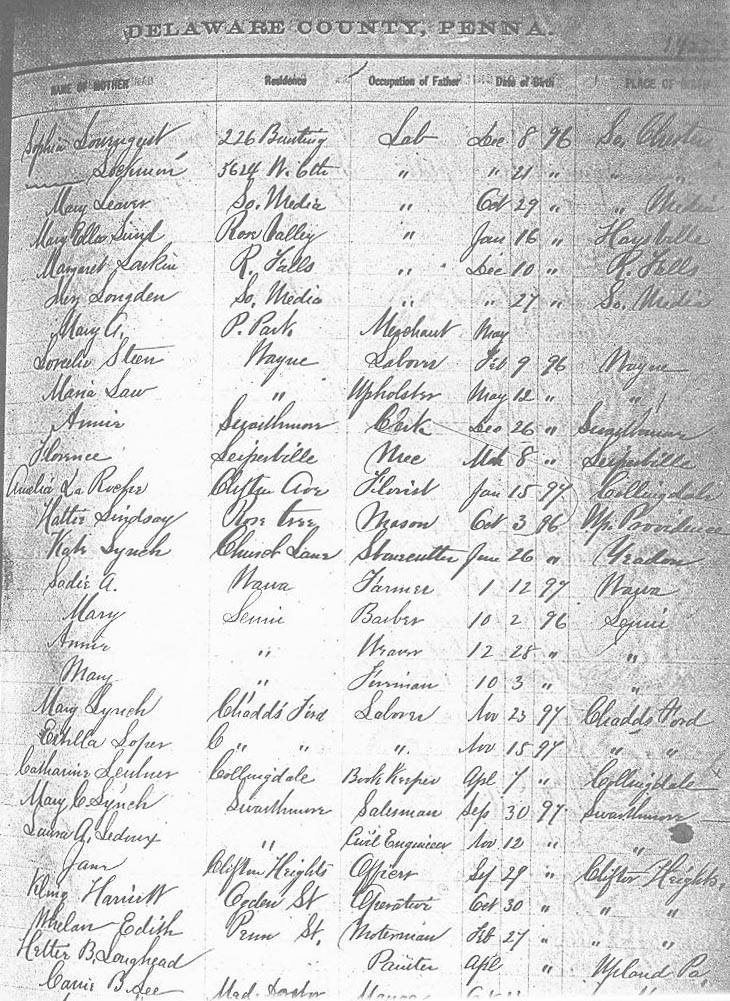 DELAWARE COUNTY, PENNA.
NAME OF MOTHER Residence Occupation of Father Date of Birth PLACE OF
Sophia 226 Bunting Lab Dec 8 96 So. Chester
5624 W. 6th " " 21 " " "
Mary Leaver So. Media " Oct 29 " " Media
Mary Ella Rose Valley " Jan 16 " Haysville
Margaret Larkin R. Falls " Dec 10 " R. Falls
Longden So. Media " " 27 " So. Media
Mary A. P. Park Merchant May
Steen Wayne Laborer Feb 9 96 Wayne
Maria Law " Upholster May 12 " "
Annie Swathmore Clerk Dec 26 " Swathmore
Florence Leiperville Mch 8 " Leiperville
Amelia La Roche Clifton Ave Florist Jan 15 97 Collingdale
Hattie Lindsay Rose Tree Mason Oct 3 96 Up. Providence
Kate Lynch Church Lane Stonecutter June 26 " Yeadon
Sadie A. Wawa Farmer 1 12 97 Wawa
Mary Lenni Barber 10 2 96 Lenni
Annie " Weaver 12 28 " "
Mary " Fireman 10 3 " "
Mary Lynch Chadds Ford Laborer Nov 23 97 Chadds Ford
Estella Loper C " " " Nov 15 97 " "
Catharine Leutner Collingdale Book Keeper Apl 7 " Collingdale
Mary C. Lynch Swarthmore Salesman Sep 30 97 Swarthmore
Laura A. Ledoux " Civil Engineer Nov 12 " "
Jane Clifton Heights Officer Sep 29 " Clifton Heights
King Harriett Ogden St Operative Oct 30 " " "
Whelan Edith Penn St. Moterman Feb 27 " " "
Hetter B. Loughead Painter Apl " Upland Pa
Carrie B. Lee